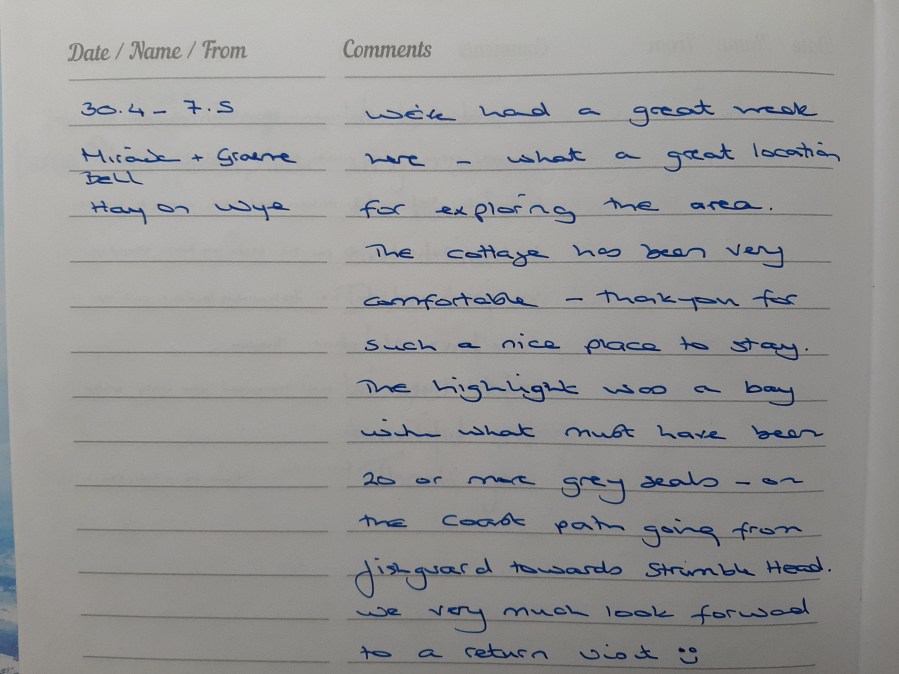 Date / Name / From
Comments
30.4 - 7.5
+ Graeme
Bell
Hay on Wye
We've had a great week
here - what a great location
for exploring the area.
The cottage has been very
comfortable - thankyou for
such a nice place to stay.
The highlight was a bay
with what must have been
20 or more grey seals - on
the coast path going from
fishguard towards Strumble Head.
We very much look forward
to a return visit